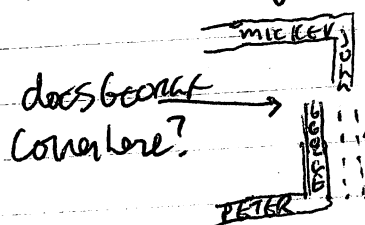 MICKEY
JOHN
does GEORGE
Cover here?
GEORGE
PETER